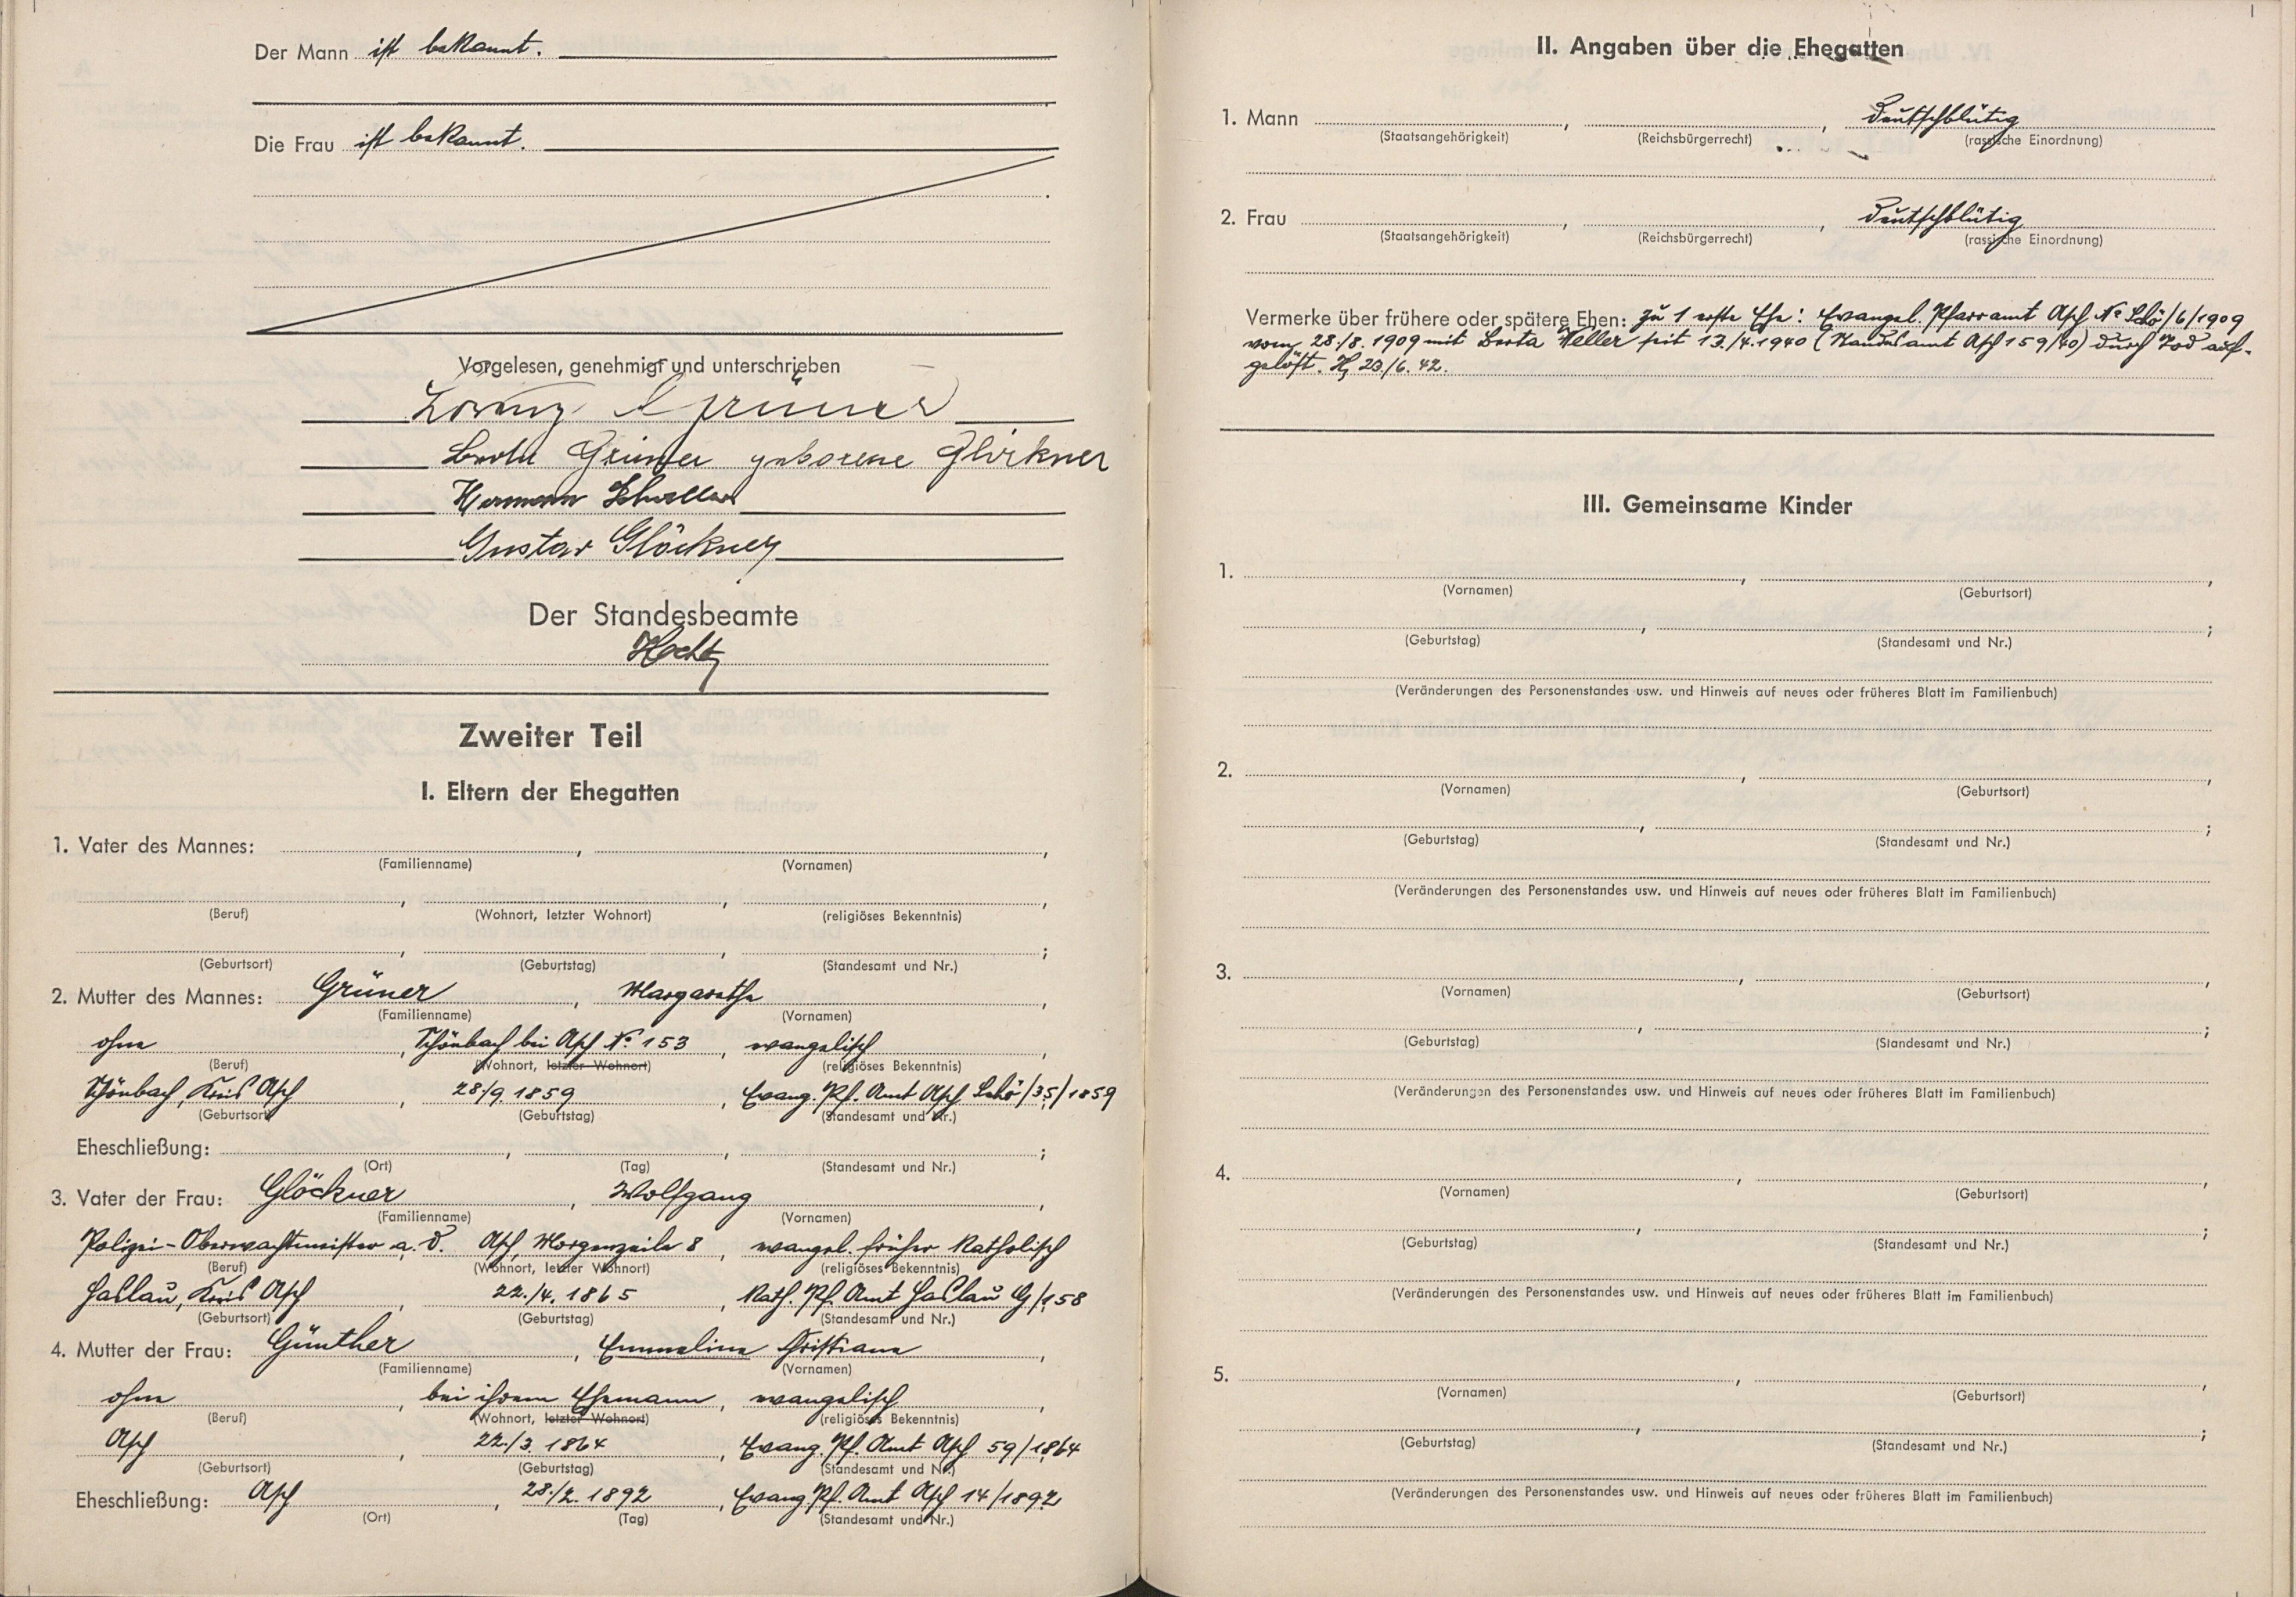 Der Mann ist bekannt.
Die Frau ist bekannt.
Vorgelesen, genehmigt und unterschrieben
Lorenz Grüner
Berta Grüner geborene Glöckner
Hermann
Gustav Glöckner
Der Standesbeamte
Zweiter Teil
I. Eltern der Ehegatten
1. Vater des Mannes: , ,
(Familienname) (Vornamen)
, , ,
(Beruf) (Wohnort, letzter Wohnort) (religiöses Bekenntnis)
, , ;
(Geburtsort) (Geburtstag) (Standesamt und Nr.)
2. Mutter des Mannes: Grüner , Margaretha ,
(Familienname) (Vornamen)
ohne , Schönbach bei Asch No 153 , evangelisch ,
(Beruf) (Wohnort, letzter Wohnort) (religiöses Bekenntnis)
Schönbach, Kreis Asch , 28./9. 1859 , Evang. Pf. Amt Asch Schö/35/1859
(Geburtsort) (Geburtstag) (Standesamt und Nr.)
Eheschließung: , , ;
(Ort) (Tag) (Standesamt und Nr.)
3. Vater der Frau: Glöckner , Wolfgang ,
(Familienname) (Vornamen)
Polizei-Oberwachtmeister a. D. Asch, Morgenzeile 8 , evangel. früher katholisch
(Beruf) (Wohnort, letzter Wohnort) (religiöses Bekenntnis)
Haslau, Kreis Asch , 22./4. 1865 , Kath. Pf. Amt Haslau G/158
(Geburtsort) (Geburtstag) (Standesamt und Nr.)
4. Mutter der Frau: Günther , Emmeline Kristiane ,
(Familienname) (Vornamen)
ohne , bei ihrem Ehemann , evangelisch ,
(Beruf) (Wohnort, letzter Wohnort) (religiöses Bekenntnis)
Asch , 22./3. 1864 , Evang. Pf. Amt Asch 59/1864
(Geburtsort) (Geburtstag) (Standesamt und Nr.)
Eheschließung: Asch , 28./2. 1892 , Evang. Pf. Amt Asch 14/1892
(Ort) (Tag) (Standesamt und Nr.)
II. Angaben über die Ehegatten
1. Mann , , deutschblütig
(Staatsangehörigkeit) (Reichsbürgerrecht) (rassische Einordnung)
2. Frau , , deutschblütig
(Staatsangehörigkeit) (Reichsbürgerrecht) (rassische Einordnung)
Vermerke über frühere oder spätere Ehen: zu 1 erste Ehe: Evangel. Pfarramt Asch No Schö/6/1909
vom 28./8. 1909 mit Berta Weller seit 13./4. 1940 (Standesamt Asch 159/40) durch Tod auf-
gelöst. H, 23/6. 42.
III. Gemeinsame Kinder
1. , ,
(Vornamen) (Geburtsort)
, ;
(Geburtstag) (Standesamt und Nr.)
(Veränderungen des Personenstandes usw. und Hinweis auf neues oder früheres Blatt im Familienbuch)
2. , ,
(Vornamen) (Geburtsort)
, ;
(Geburtstag) (Standesamt und Nr.)
(Veränderungen des Personenstandes usw. und Hinweis auf neues oder früheres Blatt im Familienbuch)
3. , ,
(Vornamen) (Geburtsort)
, ;
(Geburtstag) (Standesamt und Nr.)
(Veränderungen des Personenstandes usw. und Hinweis auf neues oder früheres Blatt im Familienbuch)
4. , ,
(Vornamen) (Geburtsort)
, ;
(Geburtstag) (Standesamt und Nr.)
(Veränderungen des Personenstandes usw. und Hinweis auf neues oder früheres Blatt im Familienbuch)
5. , ,
(Vornamen) (Geburtsort)
, ;
(Geburtstag) (Standesamt und Nr.)
(Veränderungen des Personenstandes usw. und Hinweis auf neues oder früheres Blatt im Familienbuch)